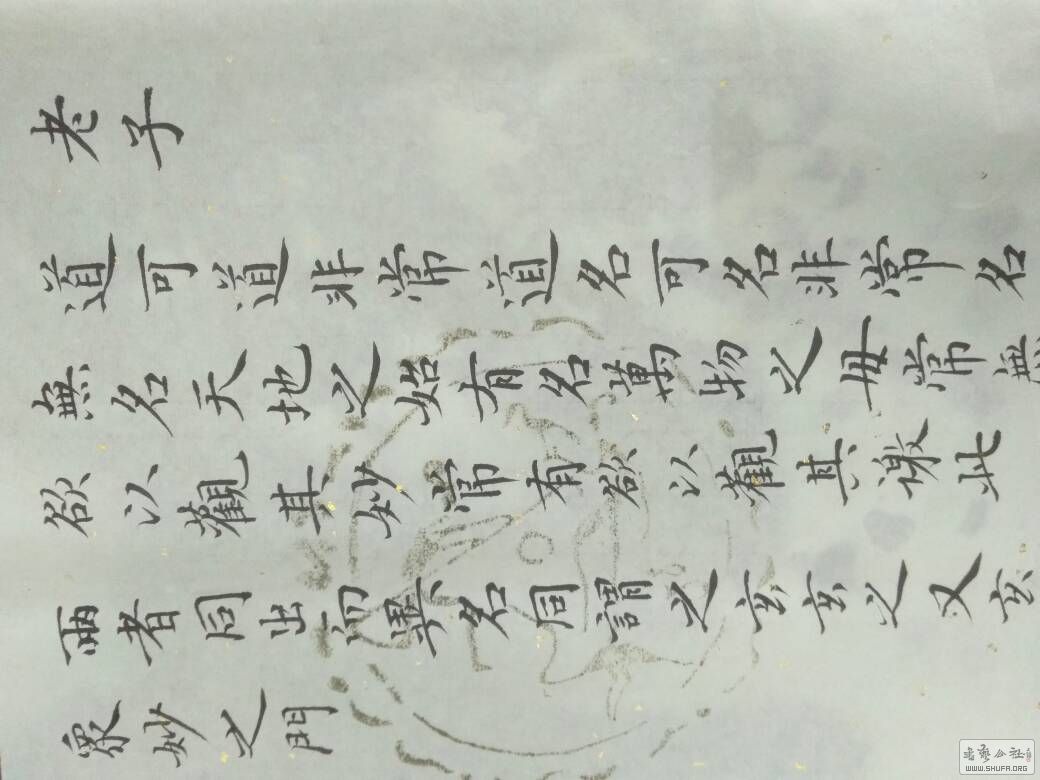 老子
道可道非常道名可名非常名
無名天地之始有名萬物之母常無
欲以觀其妙常有欲以觀其徼此
兩者同出而異名同謂之玄玄之又玄
眾妙之門
書藝公社
WWW.SHUFA.ORG